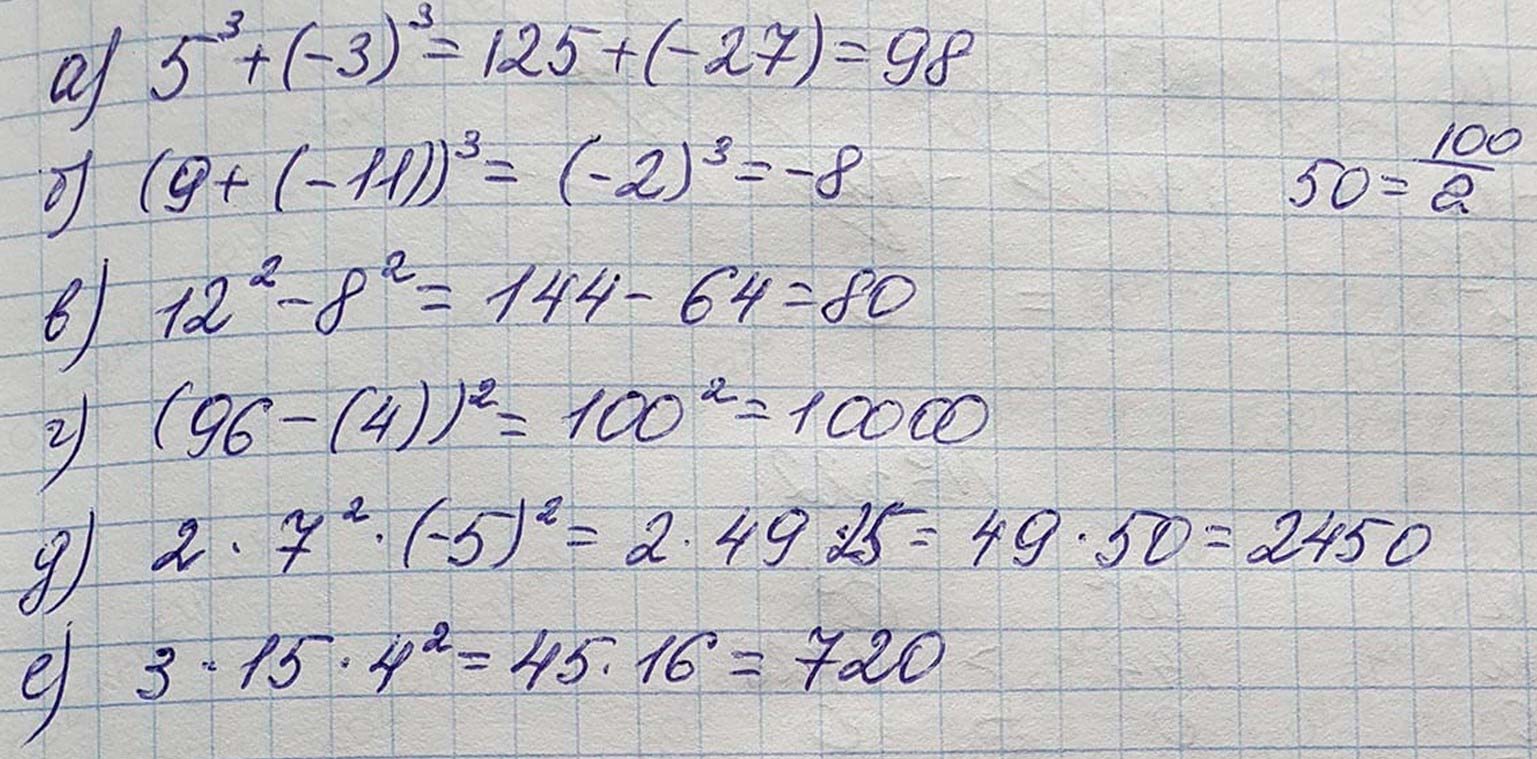 а) 5³ + (-3)³ = 125 + (-27) = 98
б) (9 + (-11))³ = (-2)³ = -8
50 = 100/2
в) 12² - 8² = 144 - 64 = 80
г) (96 - (4))² = 100² = 10000
д) 2 · 7² · (-5)² = 2 · 49 · 25 = 49 · 50 = 2450
е) 3 · 15 · 4² = 45 · 16 = 720